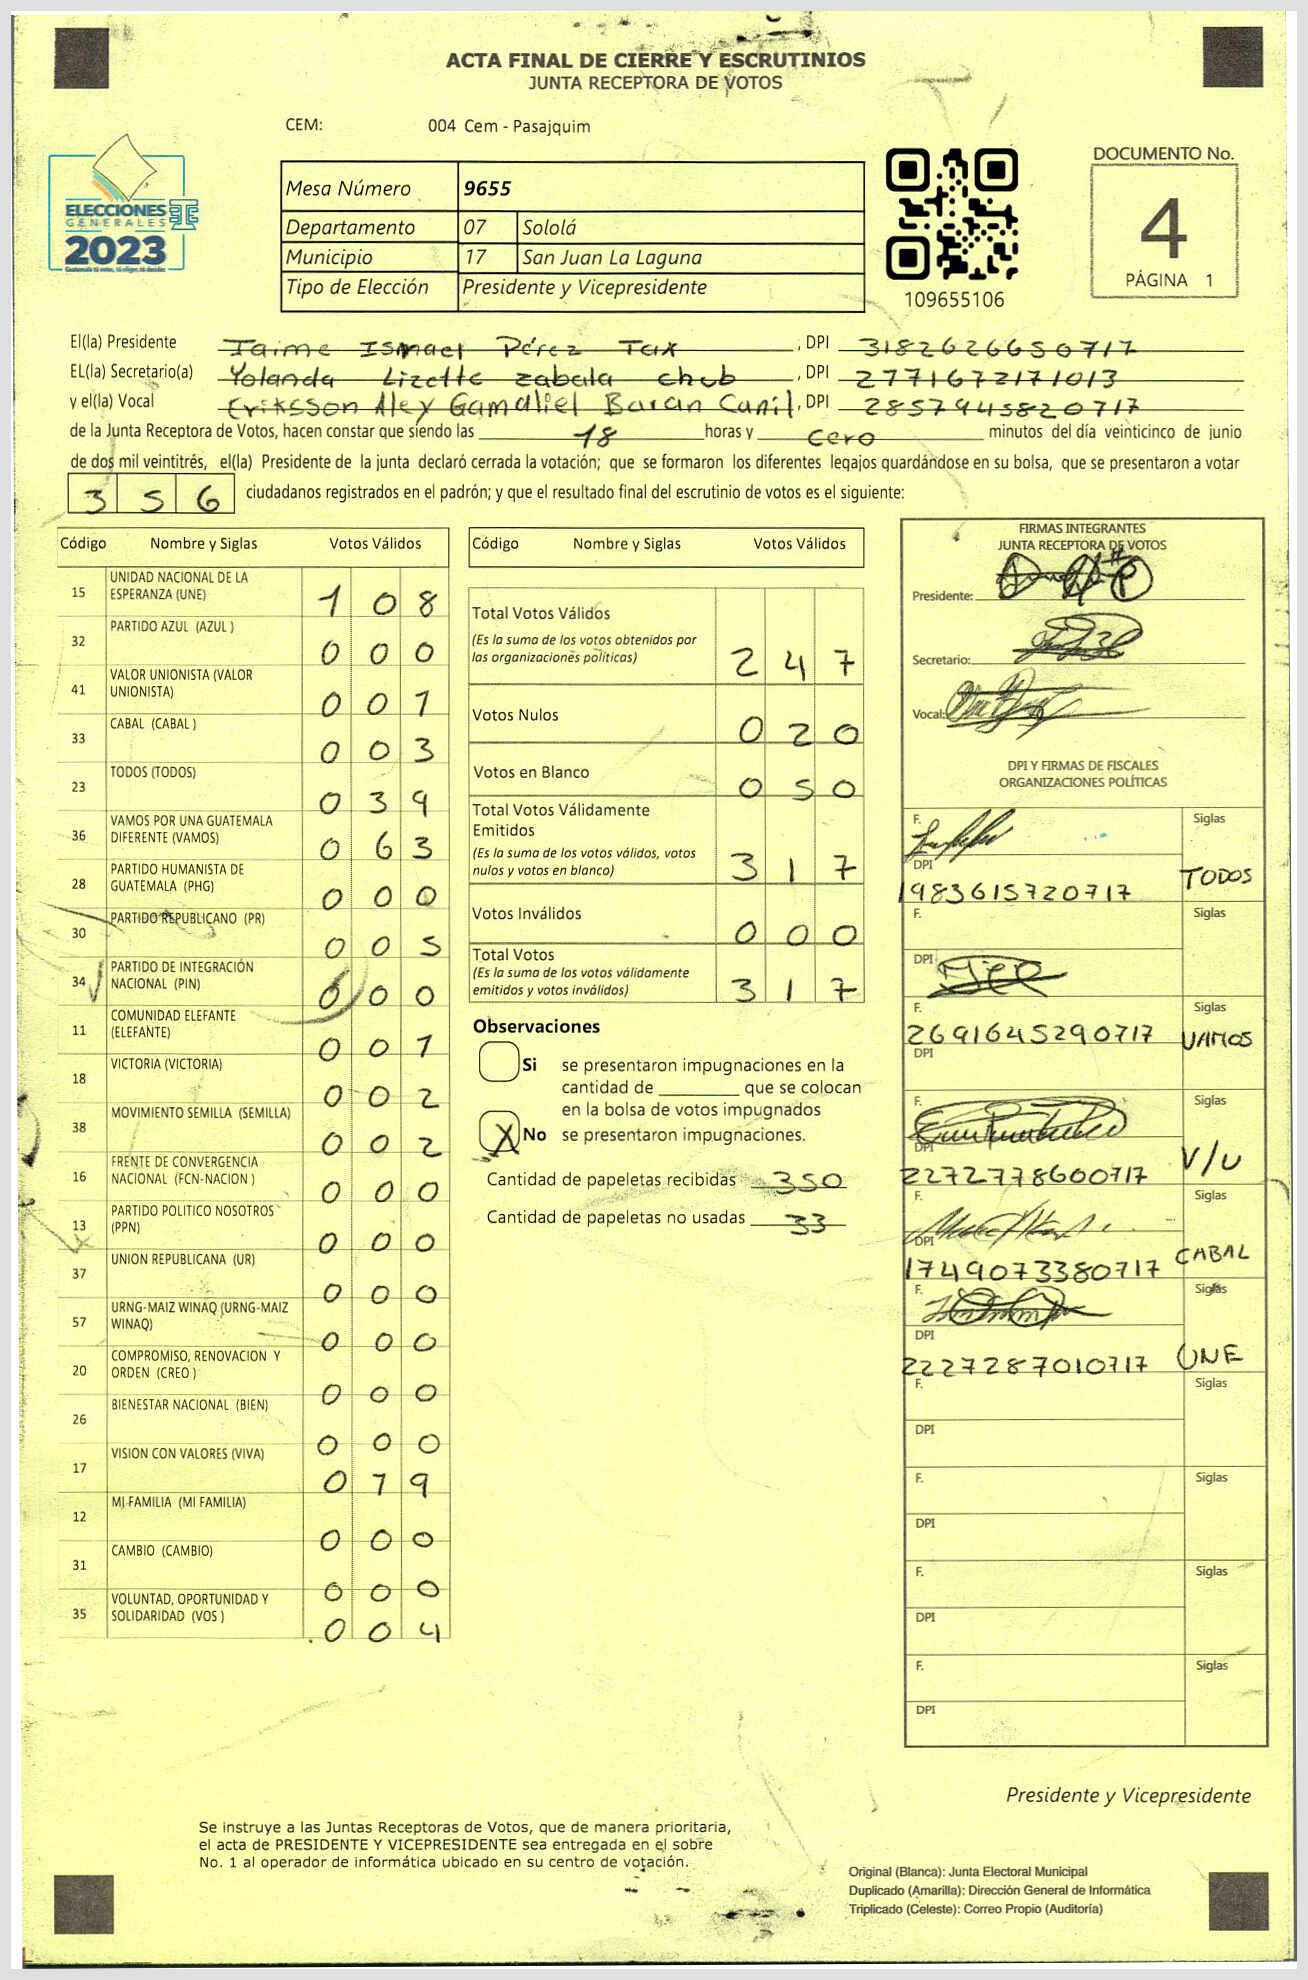 ACTA FINAL DE CIERRE Y ESCRUTINIOS
JUNTA RECEPTORA DE VOTOS
CEM: 004 Cem - Pasajquim
ELECCIONES
GENERALES
2023
Mesa Número 9655
Departamento 07 Sololá
Municipio 17 San Juan La Laguna
Tipo de Elección Presidente y Vicepresidente
109655106
DOCUMENTO No.
4
PÁGINA 1
El(la) Presidente Jaime Ismael Pérez Tax, DPI 3182626650717
EL(la) Secretario(a) Yolanda Lizette Zabala Chub, DPI 2771672171013
y el(la) Vocal Eriksson Aley Gamaliel Baran Canil, DPI 2857945820717
de la Junta Receptora de Votos, hacen constar que siendo las 18 horas y cero minutos del día veinticinco de junio
de dos mil veintitrés, el(la) Presidente de la junta declaró cerrada la votación; que se formaron los diferentes legajos guardándose en su bolsa, que se presentaron a votar
356 ciudadanos registrados en el padrón; y que el resultado final del escrutinio de votos es el siguiente:
Código Nombre y Siglas Votos Válidos
15 UNIDAD NACIONAL DE LA ESPERANZA (UNE) 108
32 PARTIDO AZUL (AZUL ) 000
41 VALOR UNIONISTA (VALOR UNIONISTA) 001
33 CABAL (CABAL ) 003
23 TODOS (TODOS) 039
36 VAMOS POR UNA GUATEMALA DIFERENTE (VAMOS) 063
28 PARTIDO HUMANISTA DE GUATEMALA (PHG) 000
30 PARTIDO REPUBLICANO (PR) 005
34 PARTIDO DE INTEGRACIÓN NACIONAL (PIN) 000
11 COMUNIDAD ELEFANTE (ELEFANTE) 001
18 VICTORIA (VICTORIA) 002
38 MOVIMIENTO SEMILLA (SEMILLA) 002
16 FRENTE DE CONVERGENCIA NACIONAL (FCN-NACION ) 000
13 PARTIDO POLITICO NOSOTROS (PPN) 000
37 UNION REPUBLICANA (UR) 000
57 URNG-MAIZ WINAQ (URNG-MAIZ WINAQ) 000
20 COMPROMISO, RENOVACION Y ORDEN (CREO ) 000
26 BIENESTAR NACIONAL (BIEN) 000
17 VISION CON VALORES (VIVA) 079
12 MI FAMILIA (MI FAMILIA) 000
31 CAMBIO (CAMBIO) 000
35 VOLUNTAD, OPORTUNIDAD Y SOLIDARIDAD (VOS ) 004
Código Nombre y Siglas Votos Válidos
Total Votos Válidos 247
(Es la suma de los votos obtenidos por
las organizaciones políticas)
Votos Nulos 020
Votos en Blanco 050
Total Votos Válidamente
Emitidos 317
(Es la suma de los votos válidos, votos
nulos y votos en blanco)
Votos Inválidos 000
Total Votos 317
(Es la suma de los votos válidamente
emitidos y votos inválidos)
Observaciones
Si se presentaron impugnaciones en la
cantidad de ________ que se colocan
en la bolsa de votos impugnados
X No se presentaron impugnaciones.
Cantidad de papeletas recibidas 350
Cantidad de papeletas no usadas 33
FIRMAS INTEGRANTES
JUNTA RECEPTORA DE VOTOS
Presidente:
Secretario:
Vocal:
DPI Y FIRMAS DE FISCALES
ORGANIZACIONES POLÍTICAS
F. Siglas
DPI
1983615720717 TODOS
F. Siglas
DPI
F. Siglas
2691645290717 VAMOS
DPI
F. Siglas
DPI
2272778600717 V/U
F. Siglas
DPI
1749073380717 CABAL
F. Siglas
DPI
2227287010717 UNE
F. Siglas
DPI
F. Siglas
DPI
F. Siglas
DPI
F. Siglas
DPI
Presidente y Vicepresidente
Se instruye a las Juntas Receptoras de Votos, que de manera prioritaria,
el acta de PRESIDENTE Y VICEPRESIDENTE sea entregada en el sobre
No. 1 al operador de informática ubicado en su centro de votación.
Original (Blanca): Junta Electoral Municipal
Duplicado (Amarilla): Dirección General de Informática
Triplicado (Celeste): Correo Propio (Auditoría)